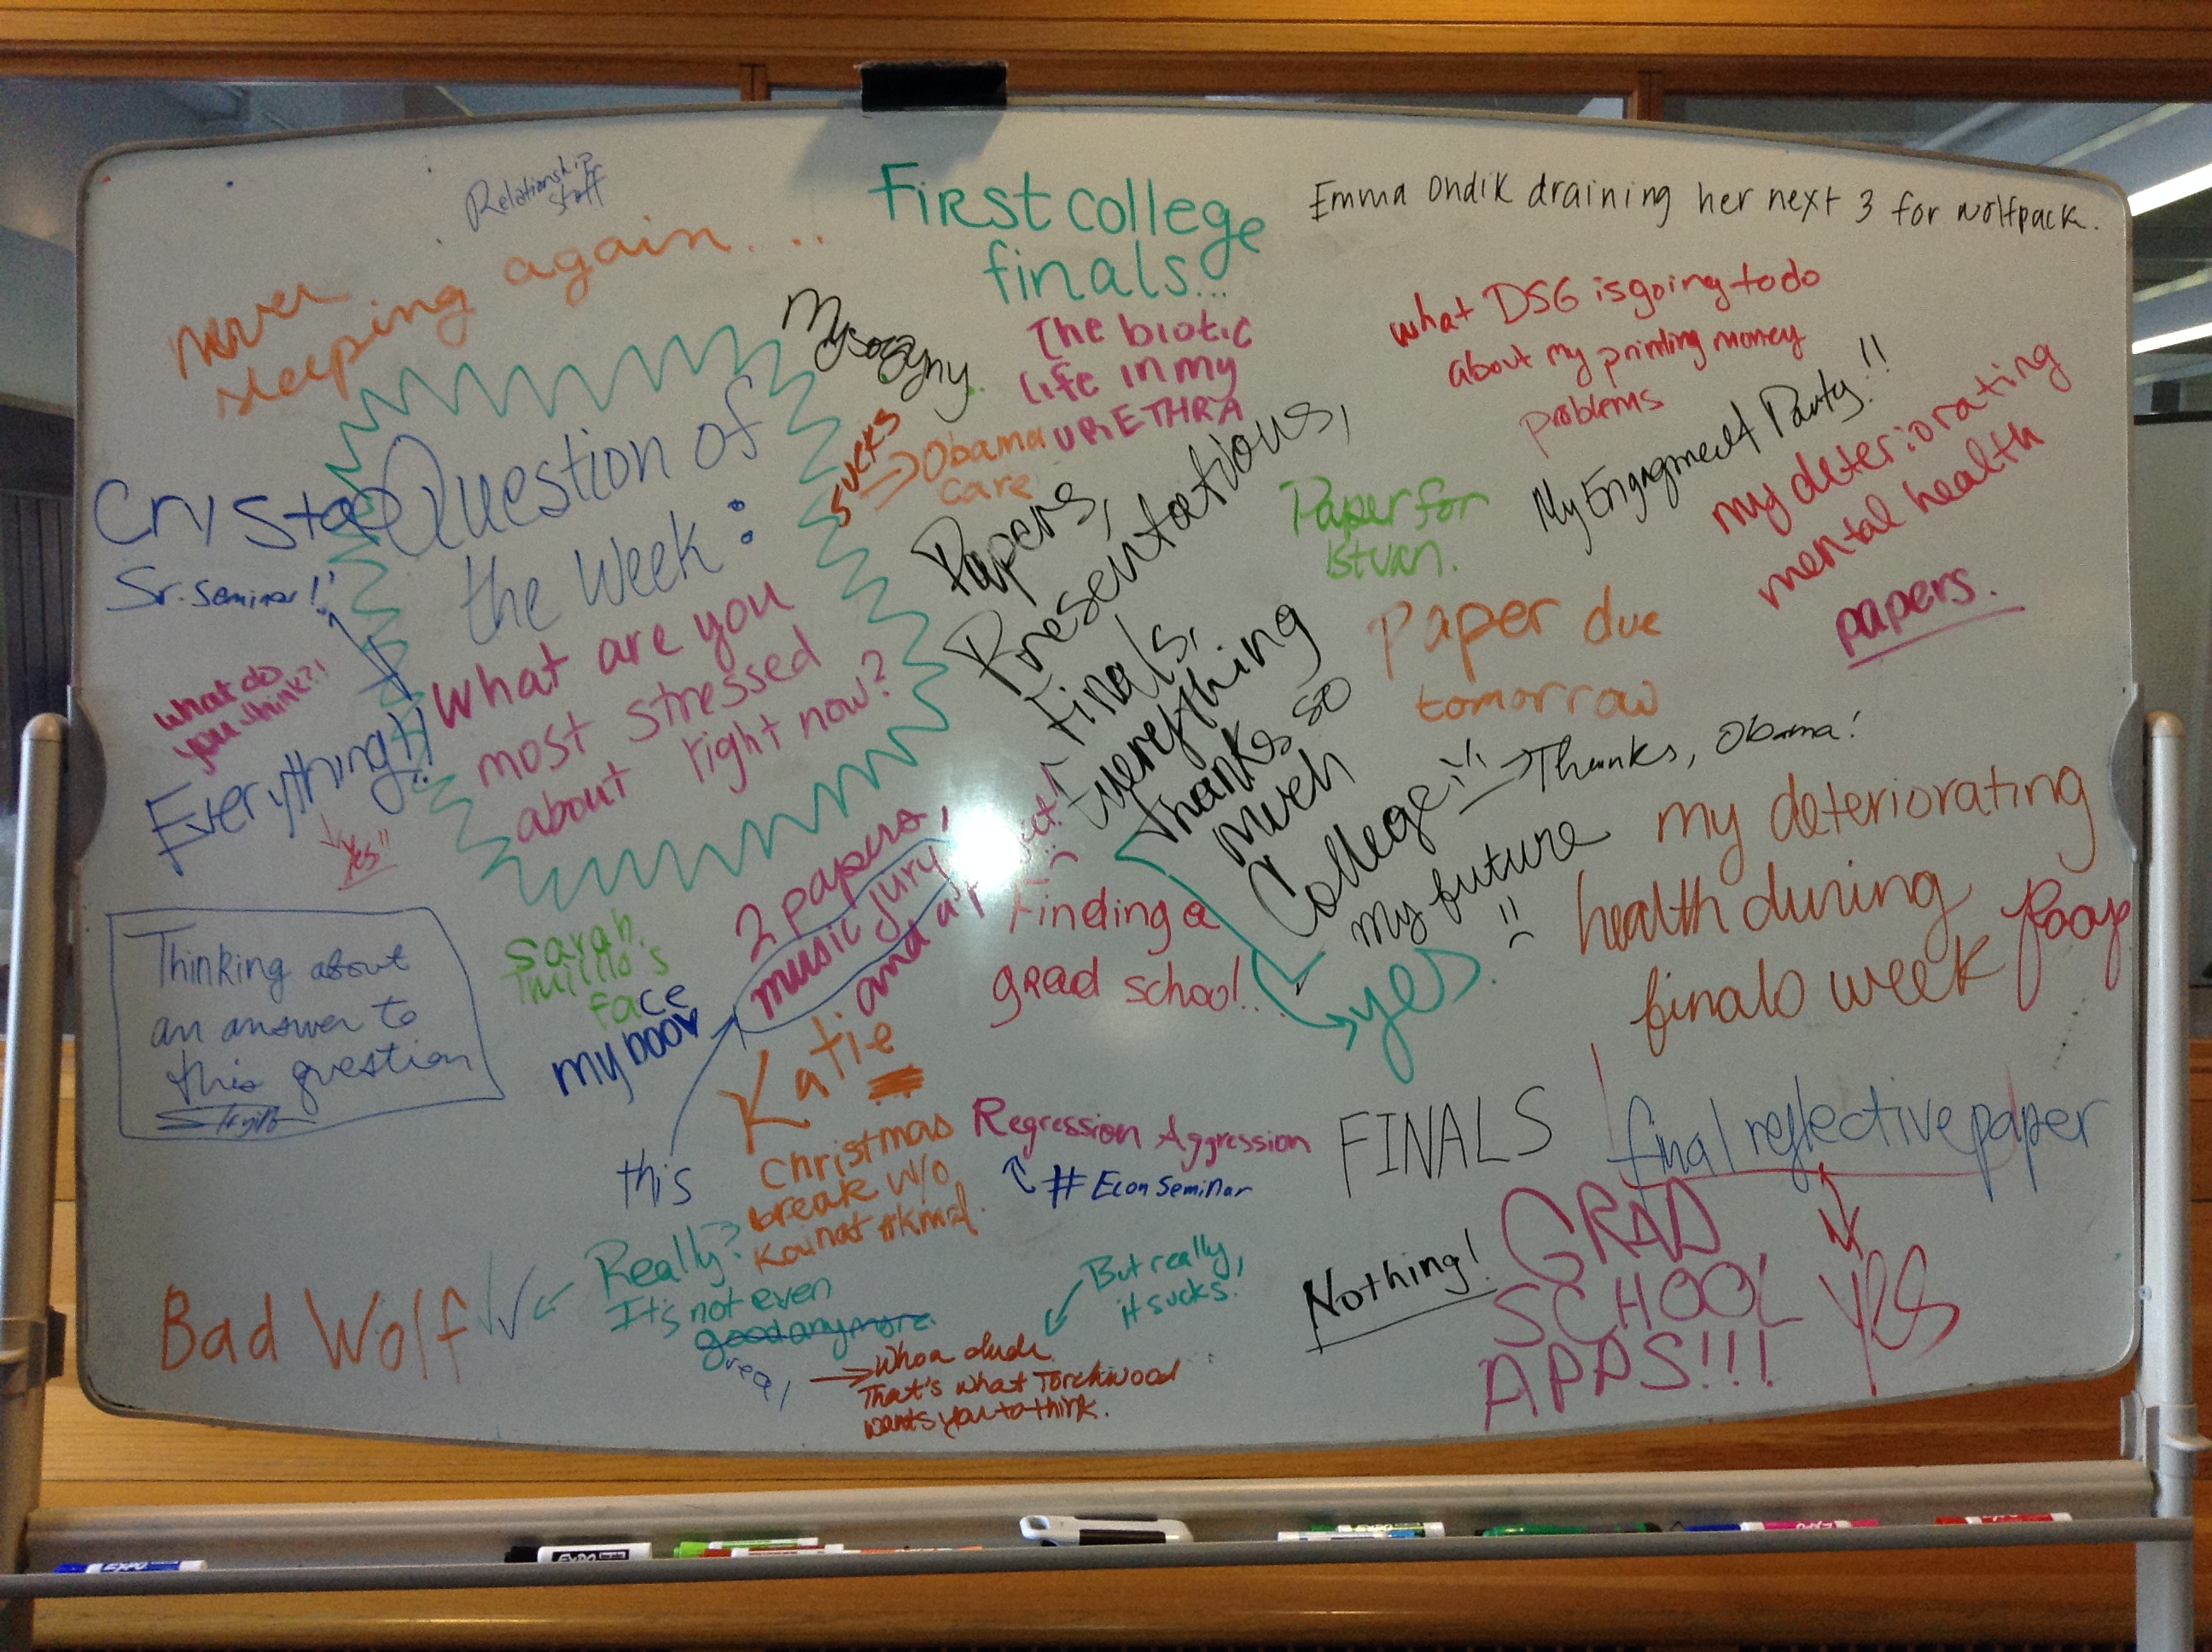 Relationship
stuff
never
sleeping again....
First college
finals...
Emma Ondik draining her next 3 for wolfpack.
Mysogyny.
The biotic
life in my
URETHRA
what DSG is going to do
about my printing money
problems
sucks
Obama
care
My Engagment Party!!
my deteriorating
mental health
papers.
Crystal
Sr. Seminar!!
Question of
the Week:
What are you
most stressed
about right now?
what do
you think?!
Everything!!
Yes!!
Papers,
Presentations,
Finals,
Everything
Thanks so
much
College!!
Thanks, Obama!
Paper for
Istvan.
Paper due
tomorrow
my future
yes.
my deteriorating
health during
finals week
Poop
Thinking about
an answer to
this question
Sarah
face
my
2 papers,
music jury
and a
this
Finding a
grad school...
Katie
Christmas
break w/o
Kainat #kmd.
Regression Aggression
# Econ Seminar
FINALS
final reflective paper
YES
GRAD
SCHOOL
APPS!!!
Nothing!
Bad Wolf
Really?
It's not even
good anymore.
real
But really,
it sucks.
Whoa dude.
That's what Torchwood
wants you to think.
EXPO
EXPO